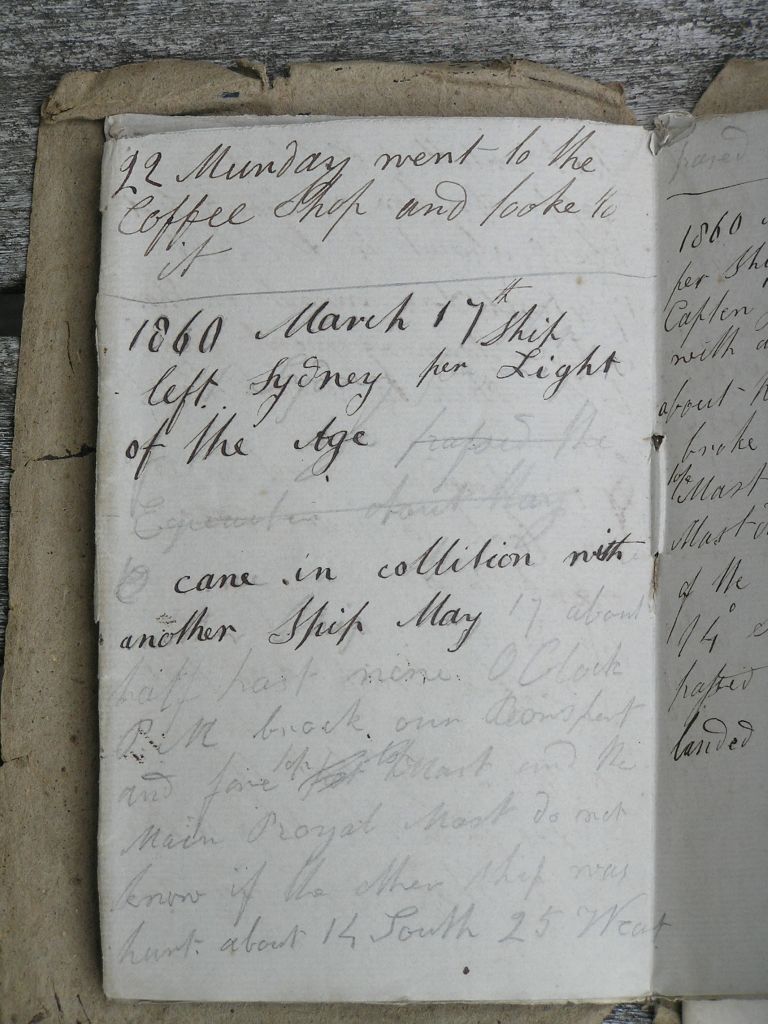 22 Munday went to the
Coffee Shop and looke to
it
1860 March 17th Ship
left Sydney per Light
of the Age passed the
Equator about May
came in collition with
another Ship May 17 about
half past nine O Clock
P.M broock our Bowspert
and fore top Mast and the
Main Royal Mast do not
know if the other ship was
hurt. about 14 South 25 West
passed
1860
per Ship
Capten
with a
about
broke
top Mast
Mast
of the
14°
passed
landed